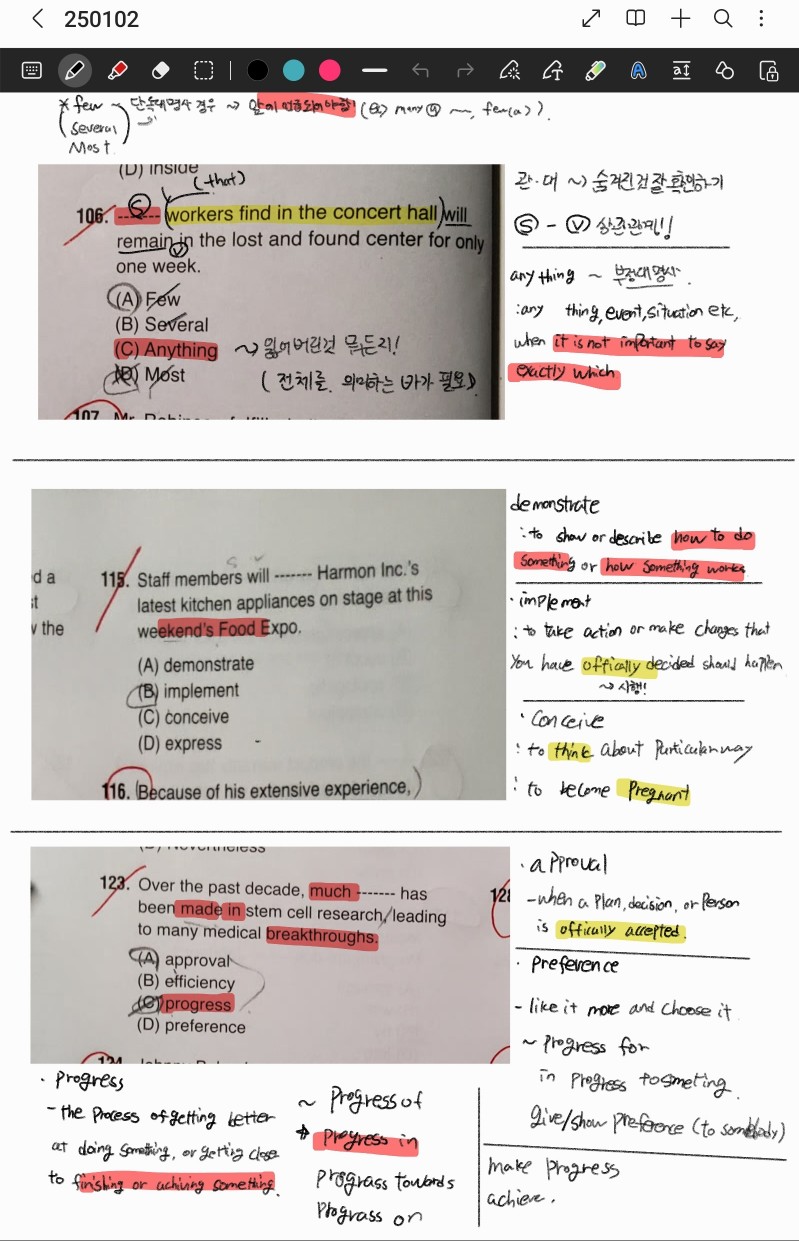 250102
* few ~ 단독대명사 경우 ~> 앞에 언급되어야함! (ex) many ⓐ ~, few(a)).
Several
Most
(D) Inside
(that)
106. ------- workers find in the concert hall will
remain in the lost and found center for only
one week.
(A) Few
(B) Several
(C) Anything ~> 잃어버린건 뭐든지!
(D) Most ( 전체를 의미하는 바가 필요)
107
관·대 ~> 숨겨진것 잘 확인하기
Ⓢ - Ⓥ 상관관계!!
anything ~ 부정대명사.
: any thing, event, situation etc,
when it is not important to say
exactly which
d a
st
v the
s v
115. Staff members will ------- Harmon Inc.'s
latest kitchen appliances on stage at this
weekend's Food Expo.
(A) demonstrate
(B) implement
(C) conceive
(D) express
116. Because of his extensive experience,
demonstrate
: to show or describe how to do
something or how something works
· implement
: to take action or make changes that
You have offically decided should happen
~> 시행!
· Conceive
: to think about purticular way
: to become pregnant
(D) Nevertheless
123. Over the past decade, much ------- has
been made in stem cell research, leading
to many medical breakthroughs.
(A) approval
(B) efficiency
(C) progress
(D) preference
124
128
· approval
- when a plan, decision, or person
is offically accepted.
· preference
- like it more and choose it
~ progress for
in progress to smeting.
give/show preference (to somebody)
· progress
- the process of getting better
at doing something, or getting close
to finishing or achiving something.
~ progress of
progress in
prograss towards
prograss on
make progress
achieve.